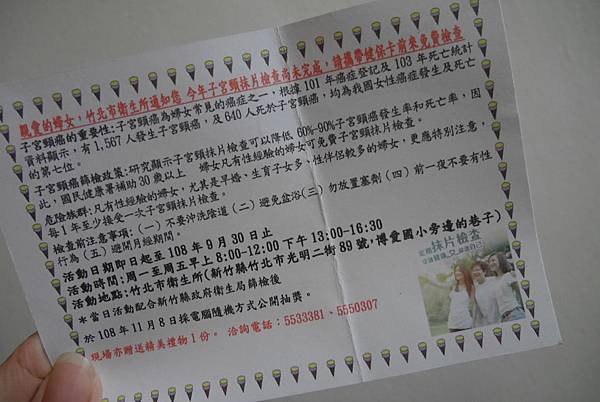 親愛的婦女，竹北市衛生所通知您 今年子宮頸抹片檢查尚未完成，請攜帶健保卡前來免費檢查
子宮頸癌的重要性：子宮頸癌為婦女常見的癌症之一，根據 101 年癌症登記及 103 年死亡統計
資料顯示，有 1,567 人發生子宮頸癌，及 640 人死於子宮頸癌，均為我國女性癌症發生及死亡
的第七位。
子宮頸癌篩檢政策：研究顯示子宮頸抹片檢查可以降低 60%-90%子宮頸癌發生率和死亡率，因
此，國民健康署補助 30 歲以上 婦女凡有性經驗的婦女可免費子宮頸抹片檢查。
危險族群：凡有性經驗的婦女，尤其是早婚、生育子女多、性伴侶較多的婦女，更應特別注意，
每 1 年至少接受一次子宮頸抹片檢查。
檢查前注意事項：(一) 不要沖洗陰道 (二) 避免盆浴(三) 勿放置塞劑 (四) 前一夜不要有性
行為 (五) 避開月經期間。
活動日期即日起至 108 年 9 月 30 日止
活動時間：周一至周五早上 8:00-12:00 下午 13:00-16:30
活動地點：竹北市衛生所(新竹縣竹北市光明二街 89 號，博愛國小旁邊的巷子)
＊當日活動配合新竹縣政府衛生局篩檢後
於 108 年 11 月 8 日採電腦隨機方式公開抽獎。
現場亦贈送精美禮物 1 份。 洽詢電話：5533381、5550307
定期 抹片檢查